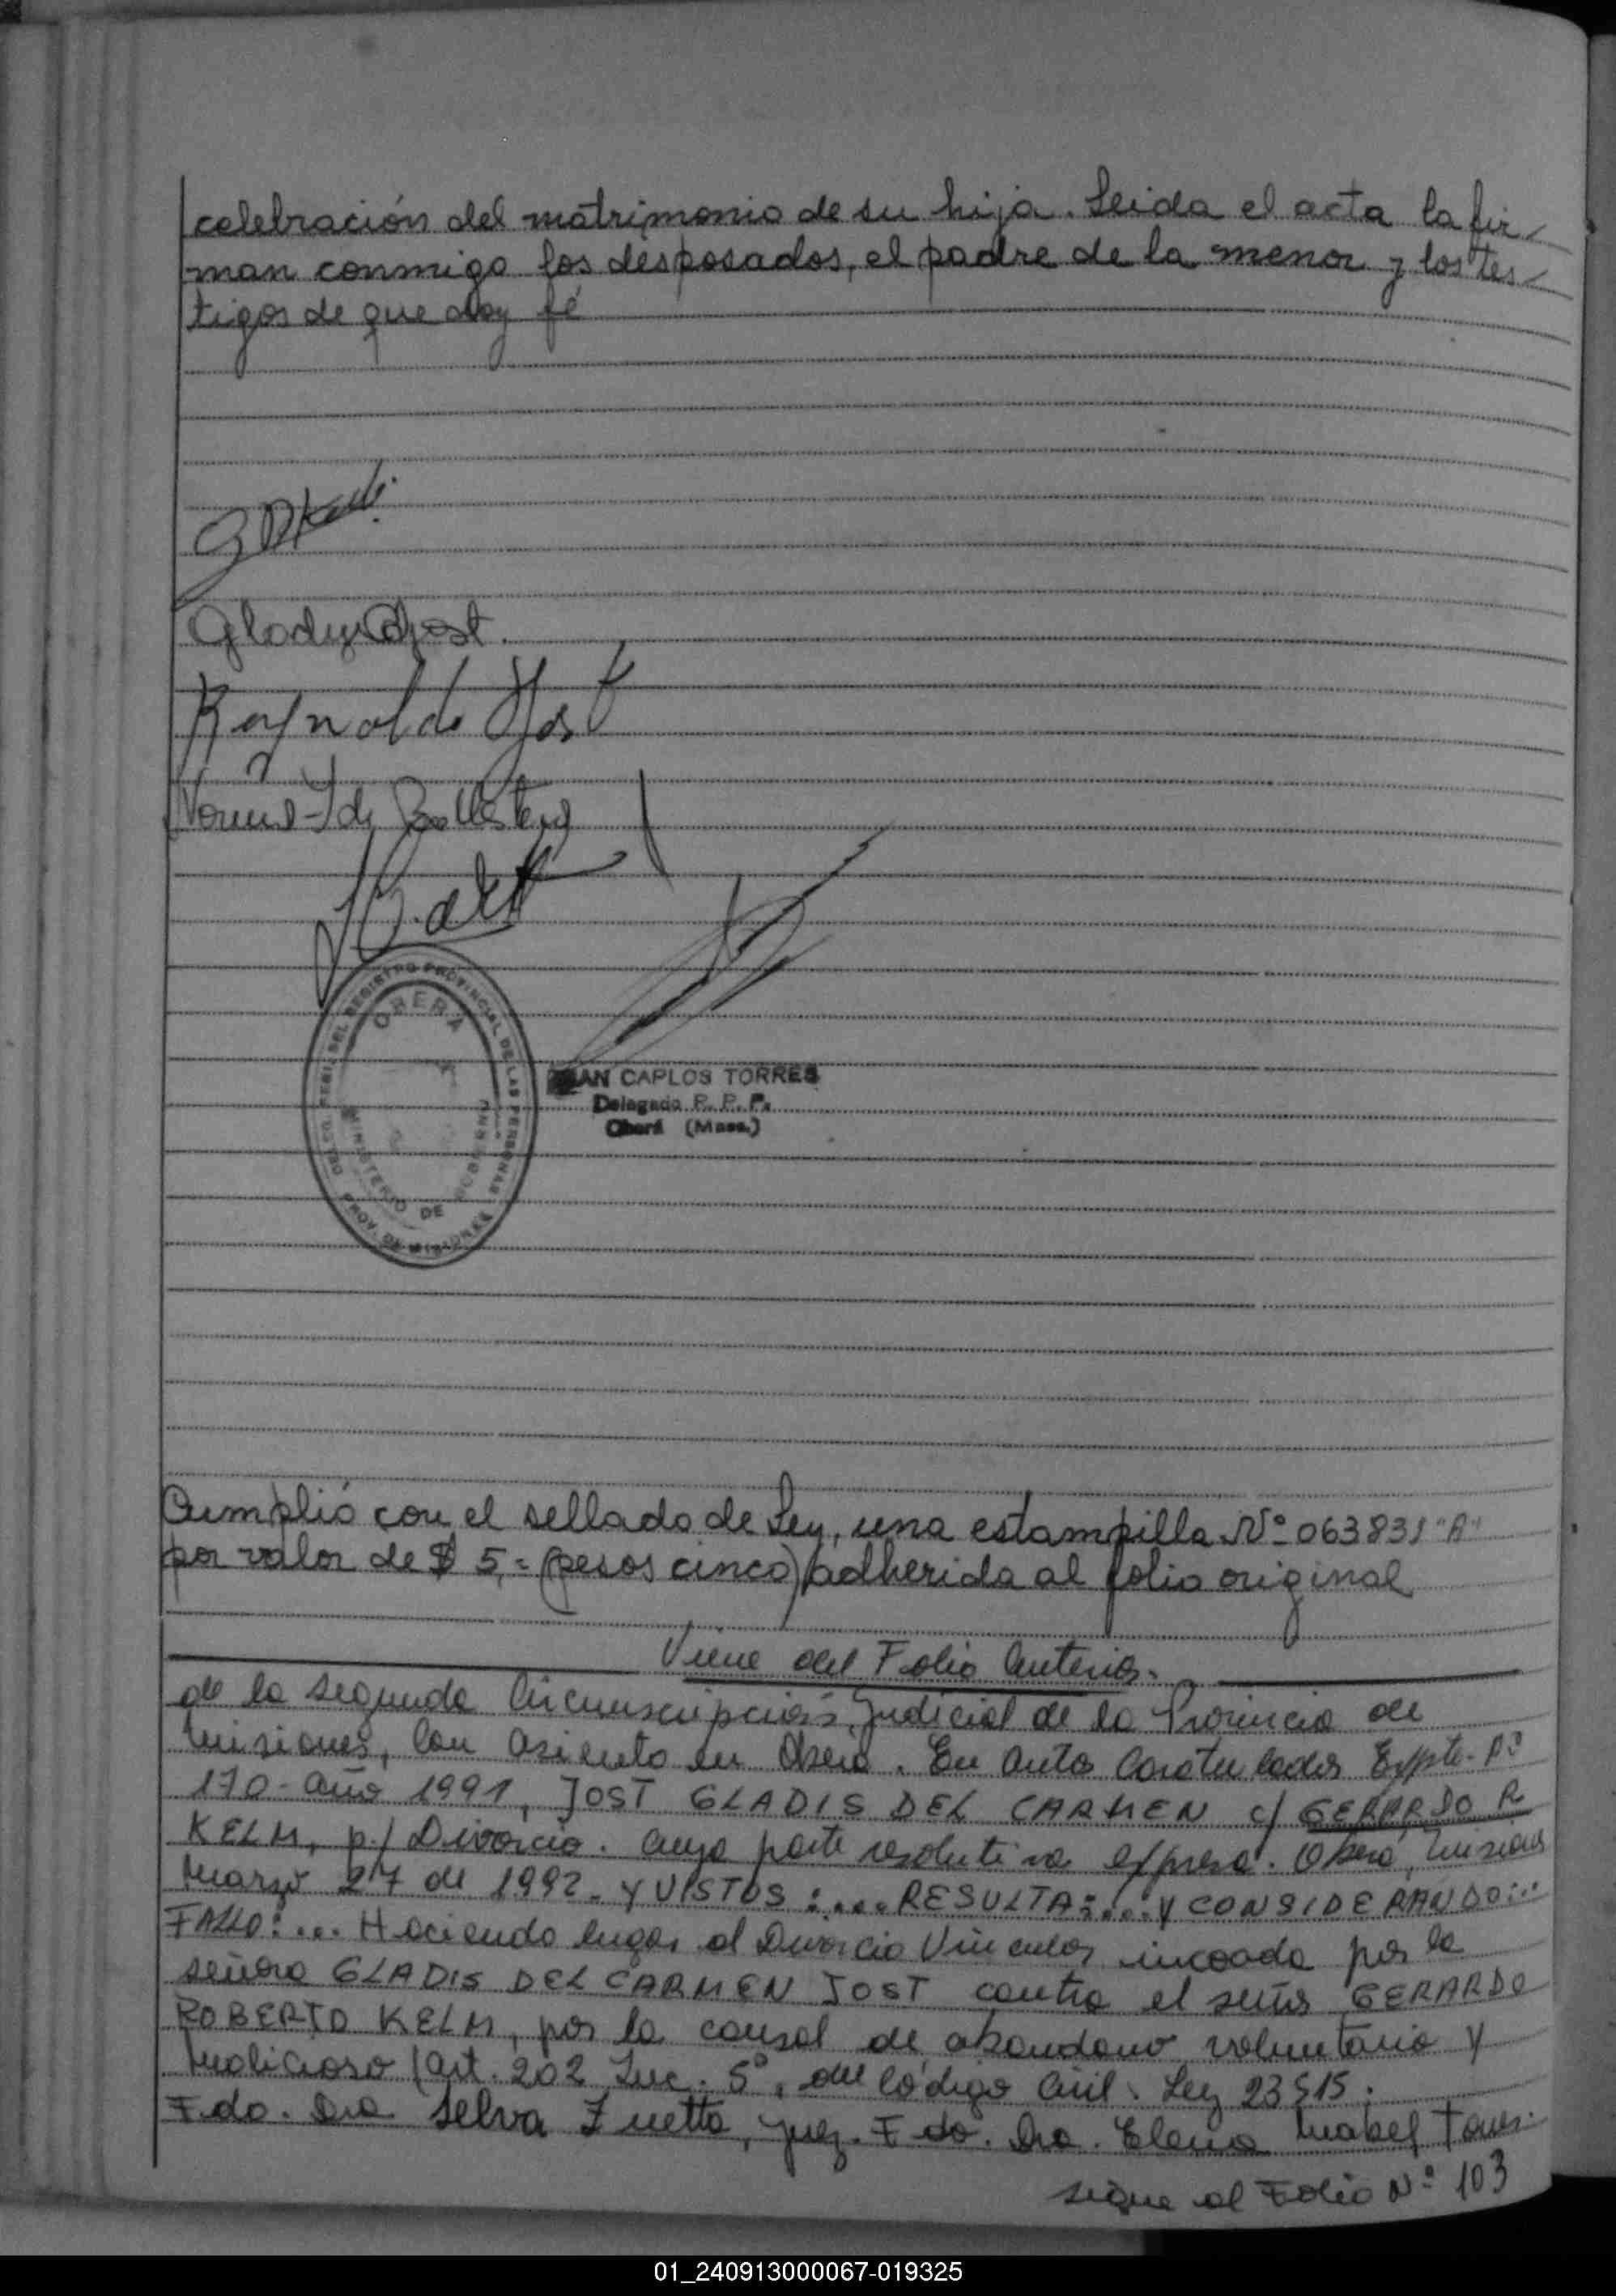 celebración del matrimonio de su hija. Leida el acta la fir-
man conmigo los desposados, el padre de la menor y los tes-
tigos de que doy fé
Gladys C Jost
Reynaldo Jost
Norma I de Ballesteros
REGISTRO PROVINCIAL DE LAS PERSONAS
OBERA
MINISTERIO DE GOBIERNO
PROV. DE MISIONES
JUAN CARLOS TORRES
Delegado R. P. P.
Oberá (Mnes.)
Cumplió con el sellado de Ley, una estampilla Nº 063831 "A"
por valor de $ 5,= (pesos cinco) adherida al folio original
Viene del Folio Anterior.
de la segunda Circunscripción Judicial de la Provincia de
Misiones, con asiento en Oberá. En autos Caratulados Expte. Nº
170- año 1991, JOST GLADIS DEL CARMEN c/ GERARDO R
KELM, p./ Divorcio. cuya parte resolutiva expresa. Oberá, Misiones
Marzo 27 de 1992. Y VISTOS:.... RESULTA:.... Y CONSIDERANDO...
FALLO:... Haciendo lugar al Divorcio Vincular incoada por la
señora GLADIS DEL CARMEN JOST contra el señor GERARDO
ROBERTO KELM, por la causal de abandono voluntario y
Malicioso (art. 202 Inc. 5º, del Código Civil. Ley 23515.
Fdo. Dra Selva Zuetta, Juez. Fdo. Dra. Elena Mabel
sigue al Folio Nº 103
01_240913000067-019325